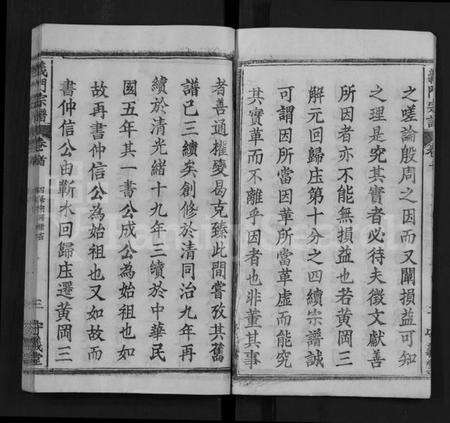 之嗟論殷周之因而又闡損益可知
之理是究其實者必待夫徵文獻善
所因者亦不能無損益也若黃岡三
解元回歸庄第十分之四續宗譜誠
可謂因所當因革所當革虛而能究
其實革而不離乎因者也非董其事
者善通權變易克臻此間嘗攷其舊
譜已三續矣創修於清同治九年再
續於清光緒十九年三續於中華民
國五年其一書公成公為始祖也如
故再書仲信公為始祖也又如故而
書仲信公由蘄水回歸庄遷黃岡三
義門宗譜
卷首
三